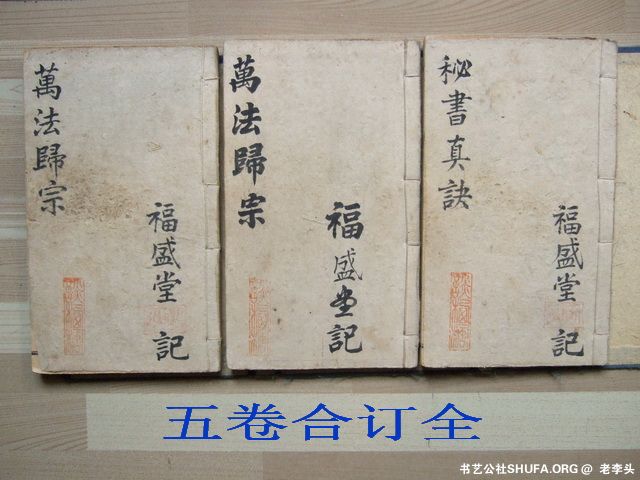 萬法歸宗
福盛堂記
萬法歸宗
福盛堂記
秘書真訣
福盛堂記
五卷合订全
书艺公社SHUFA.ORG @ 老李头